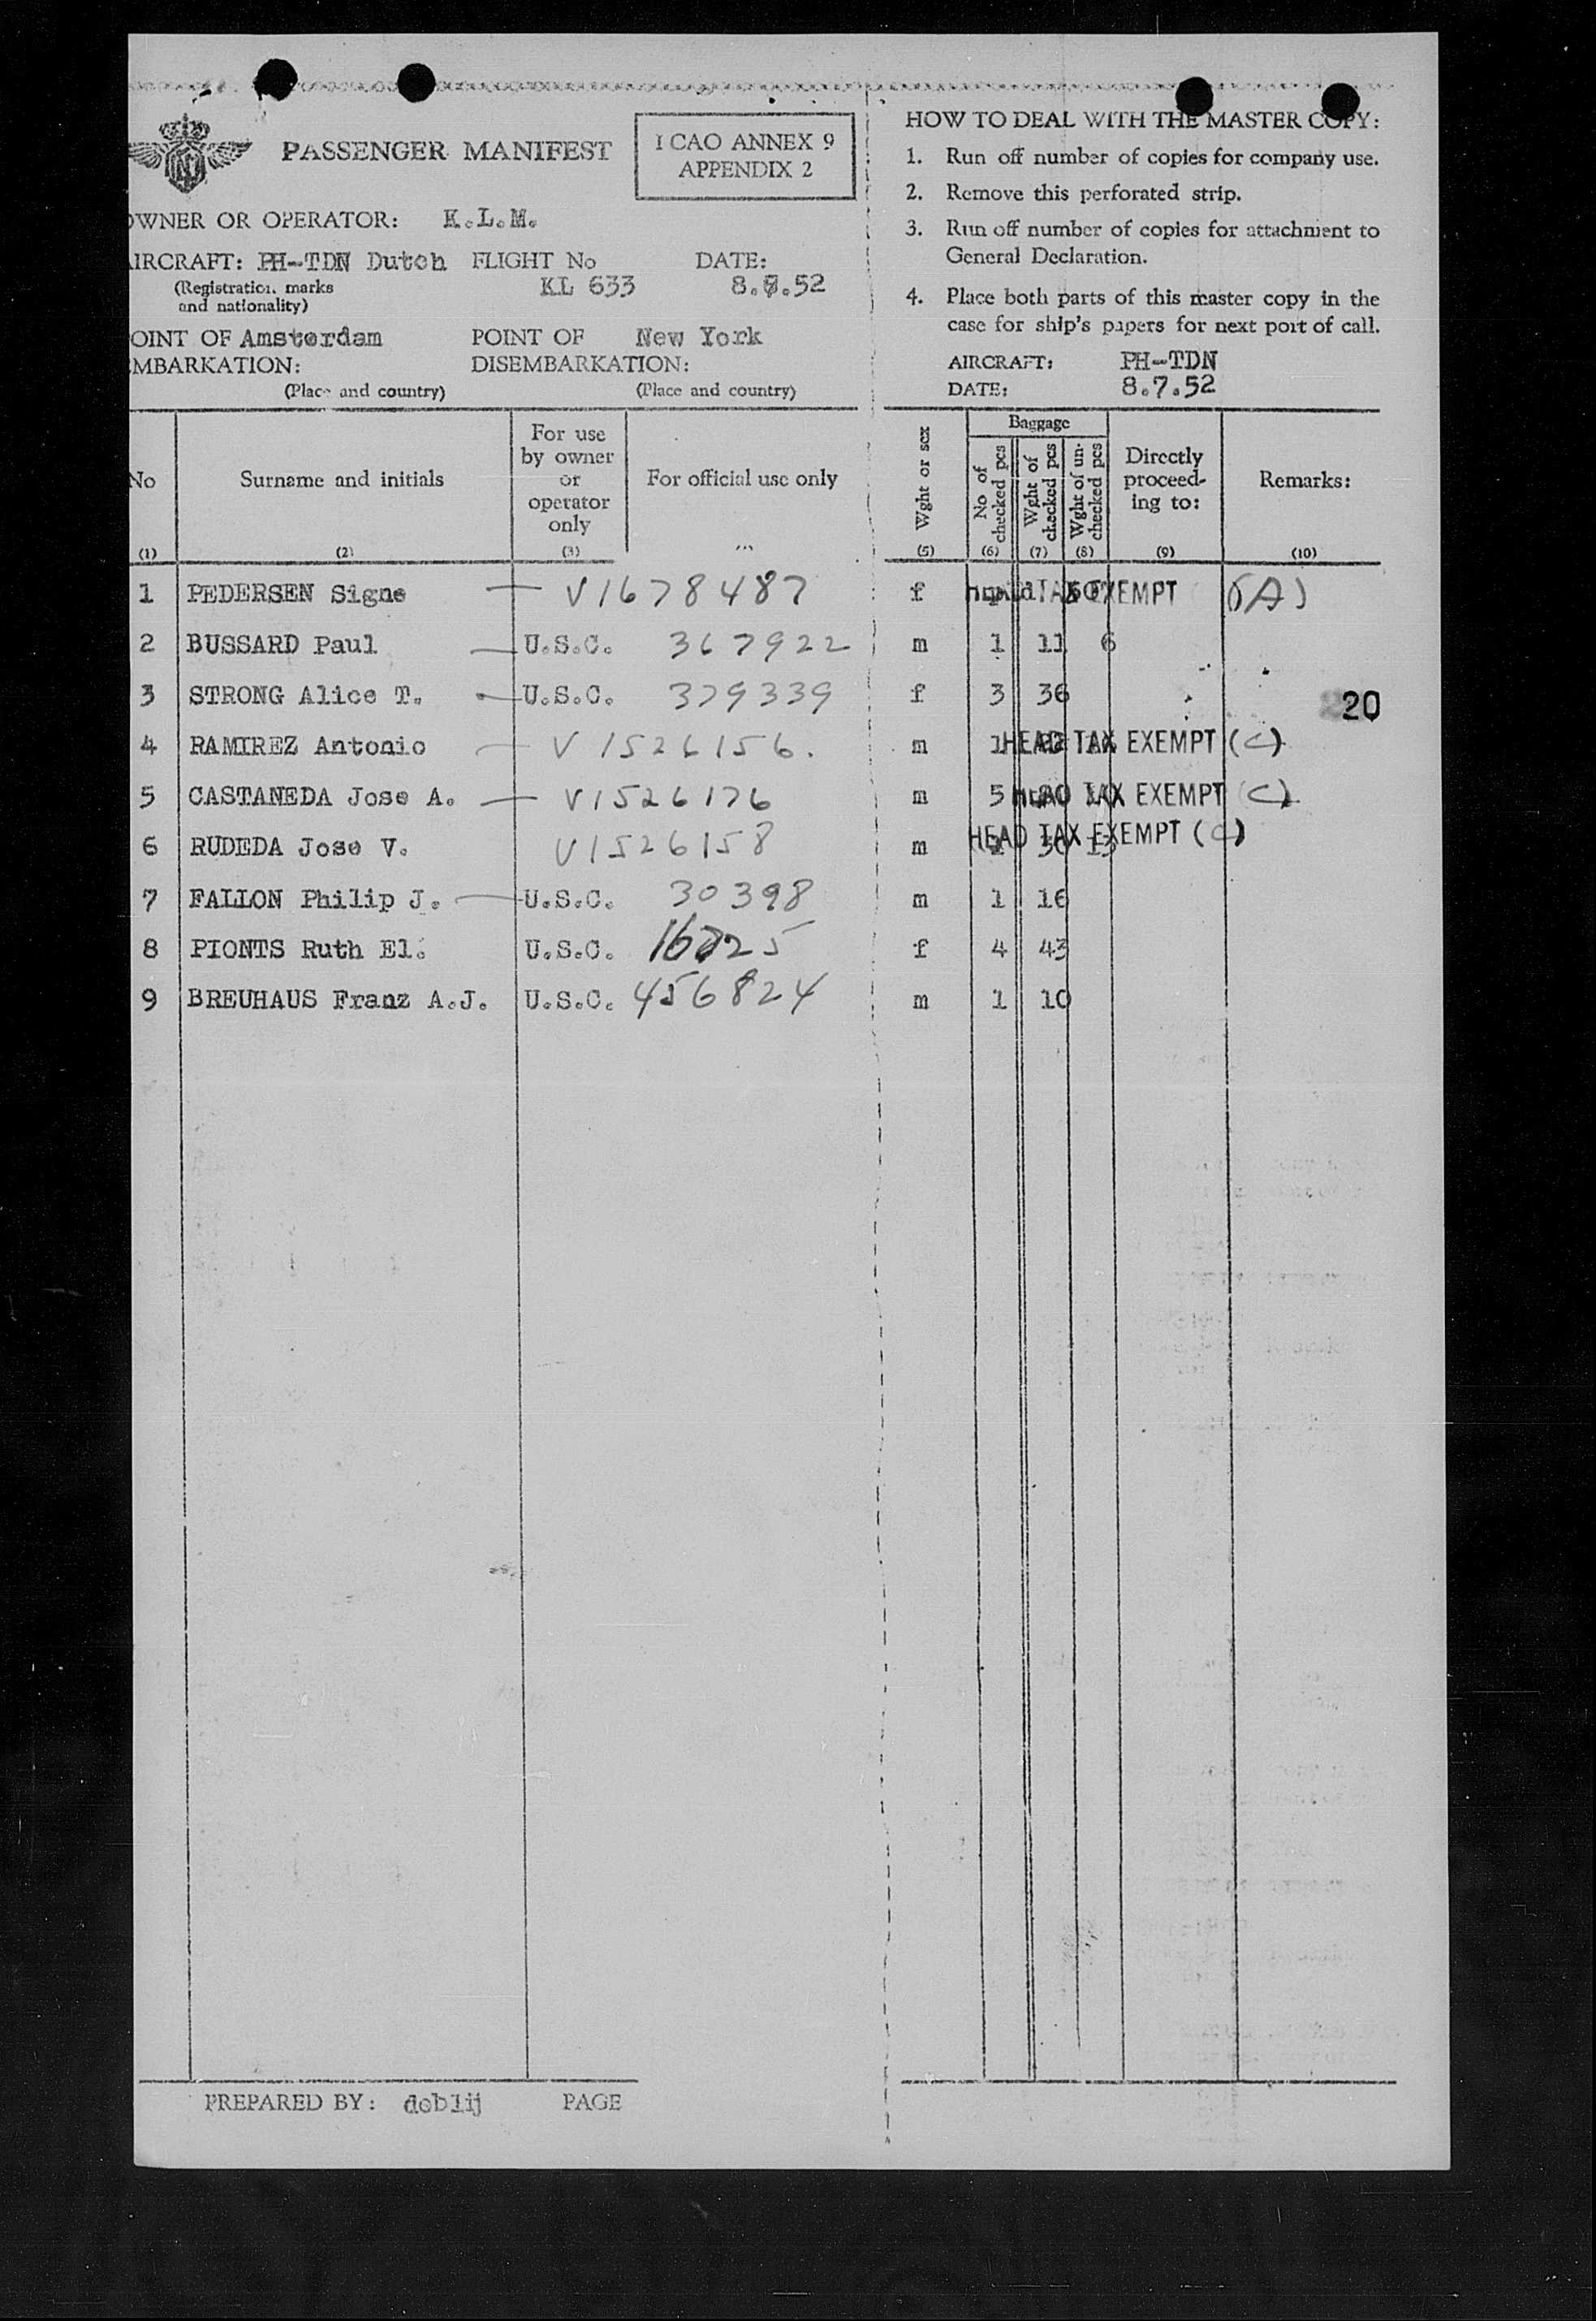 PASSENGER MANIFEST
I CAO ANNEX 9
APPENDIX 2
OWNER OR OPERATOR: K.L.M.
AIRCRAFT: PH-TDN Dutch FLIGHT No DATE:
(Registration marks
and nationality)
KL 633 8.7.52
POINT OF Amsterdam POINT OF New York
EMBARKATION: DISEMBARKATION:
(Place and country) (Place and country)
HOW TO DEAL WITH THE MASTER COPY:
1. Run off number of copies for company use.
2. Remove this perforated strip.
3. Run off number of copies for attachment to
General Declaration.
4. Place both parts of this master copy in the
case for ship's papers for next port of call.
AIRCRAFT: PH-TDN
DATE: 8.7.52
No
Surname and initials
For use
by owner
or
operator
only
For official use only
Wght or sex
Baggage
No of
checked pcs
Wght of
checked pcs
Wght of un-
checked pcs
Directly
proceed-
ing to:
Remarks:
(1) (2) (3) (5) (6) (7) (8) (9) (10)
1 PEDERSEN Signe V1678487 f TAX EXEMPT (A)
2 BUSSARD Paul U.S.C. 367922 m 1 11 6
3 STRONG Alice T. U.S.C. 379339 f 3 36
20
4 RAMIREZ Antonio V 1526156. m 1 HEAD TAX EXEMPT (C)
5 CASTANEDA Jose A. V1526176 m 5 HEAD TAX EXEMPT (C)
6 RUDEDA Jose V. V1526158 m HEAD TAX EXEMPT (C) 30 13
7 FALLON Philip J. U.S.C. 30398 m 1 16
8 PIONTS Ruth El. U.S.C. f 4 43
9 BREUHAUS Franz A.J. U.S.C. 456824 m 1 10
PREPARED BY: deblij PAGE